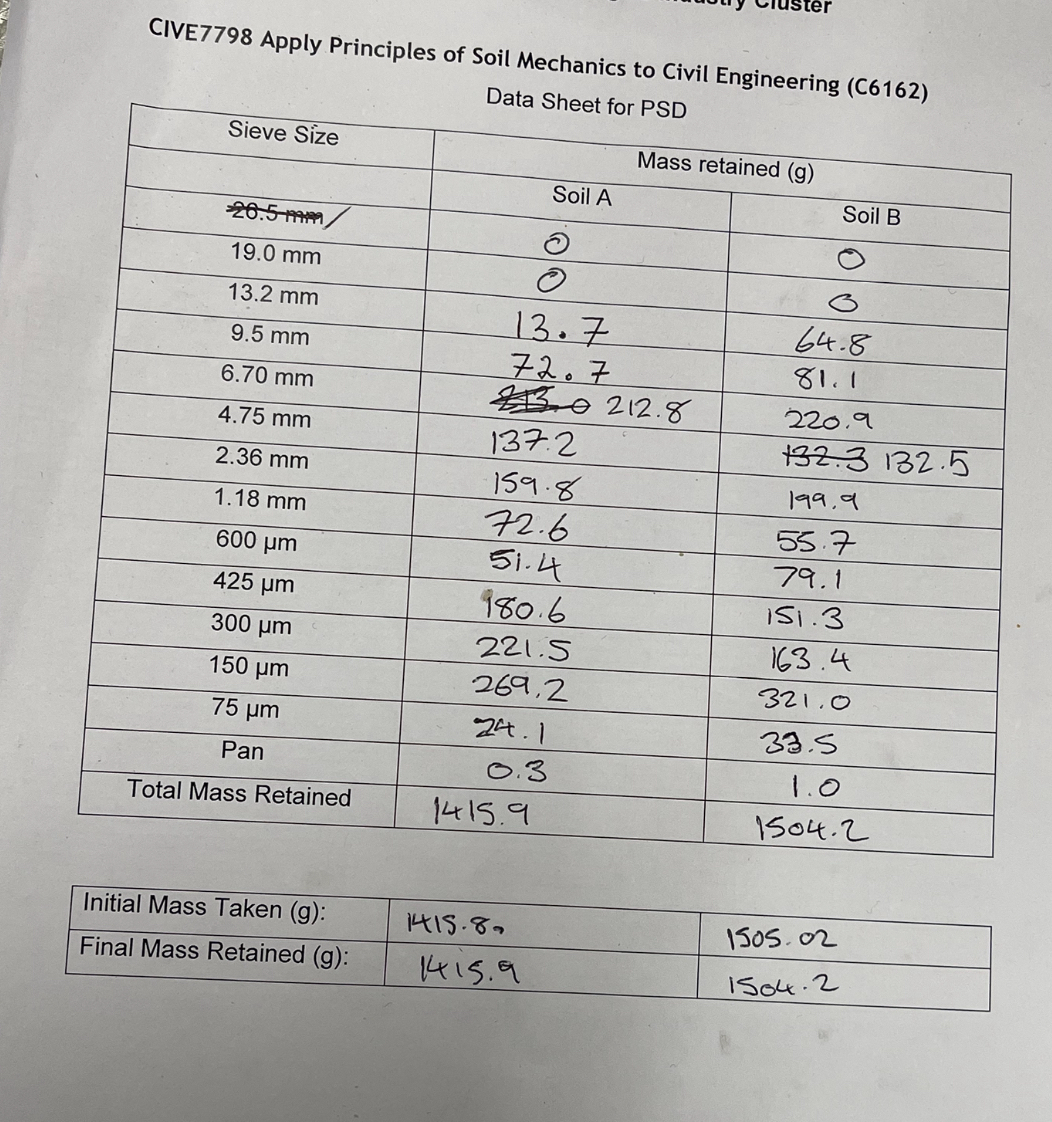 Cluster
CIVE7798 Apply Principles of Soil Mechanics to Civil Engineering (C6162)
Data Sheet for PSD
Sieve Size Mass retained (g)
Soil A Soil B
26.5 mm 0 0
19.0 mm 0 0
13.2 mm 13.7 64.8
9.5 mm 72.7 81.1
6.70 mm 213.0 212.8 220.9
4.75 mm 137.2 132.3 132.5
2.36 mm 159.8 199.9
1.18 mm 72.6 55.7
600 µm 51.4 79.1
425 µm 180.6 151.3
300 µm 221.5 163.4
150 µm 269.2 321.0
75 µm 24.1 33.5
Pan 0.3 1.0
Total Mass Retained 1415.9 1504.2
Initial Mass Taken (g): 1415.80 1505.02
Final Mass Retained (g): 1415.9 1504.2